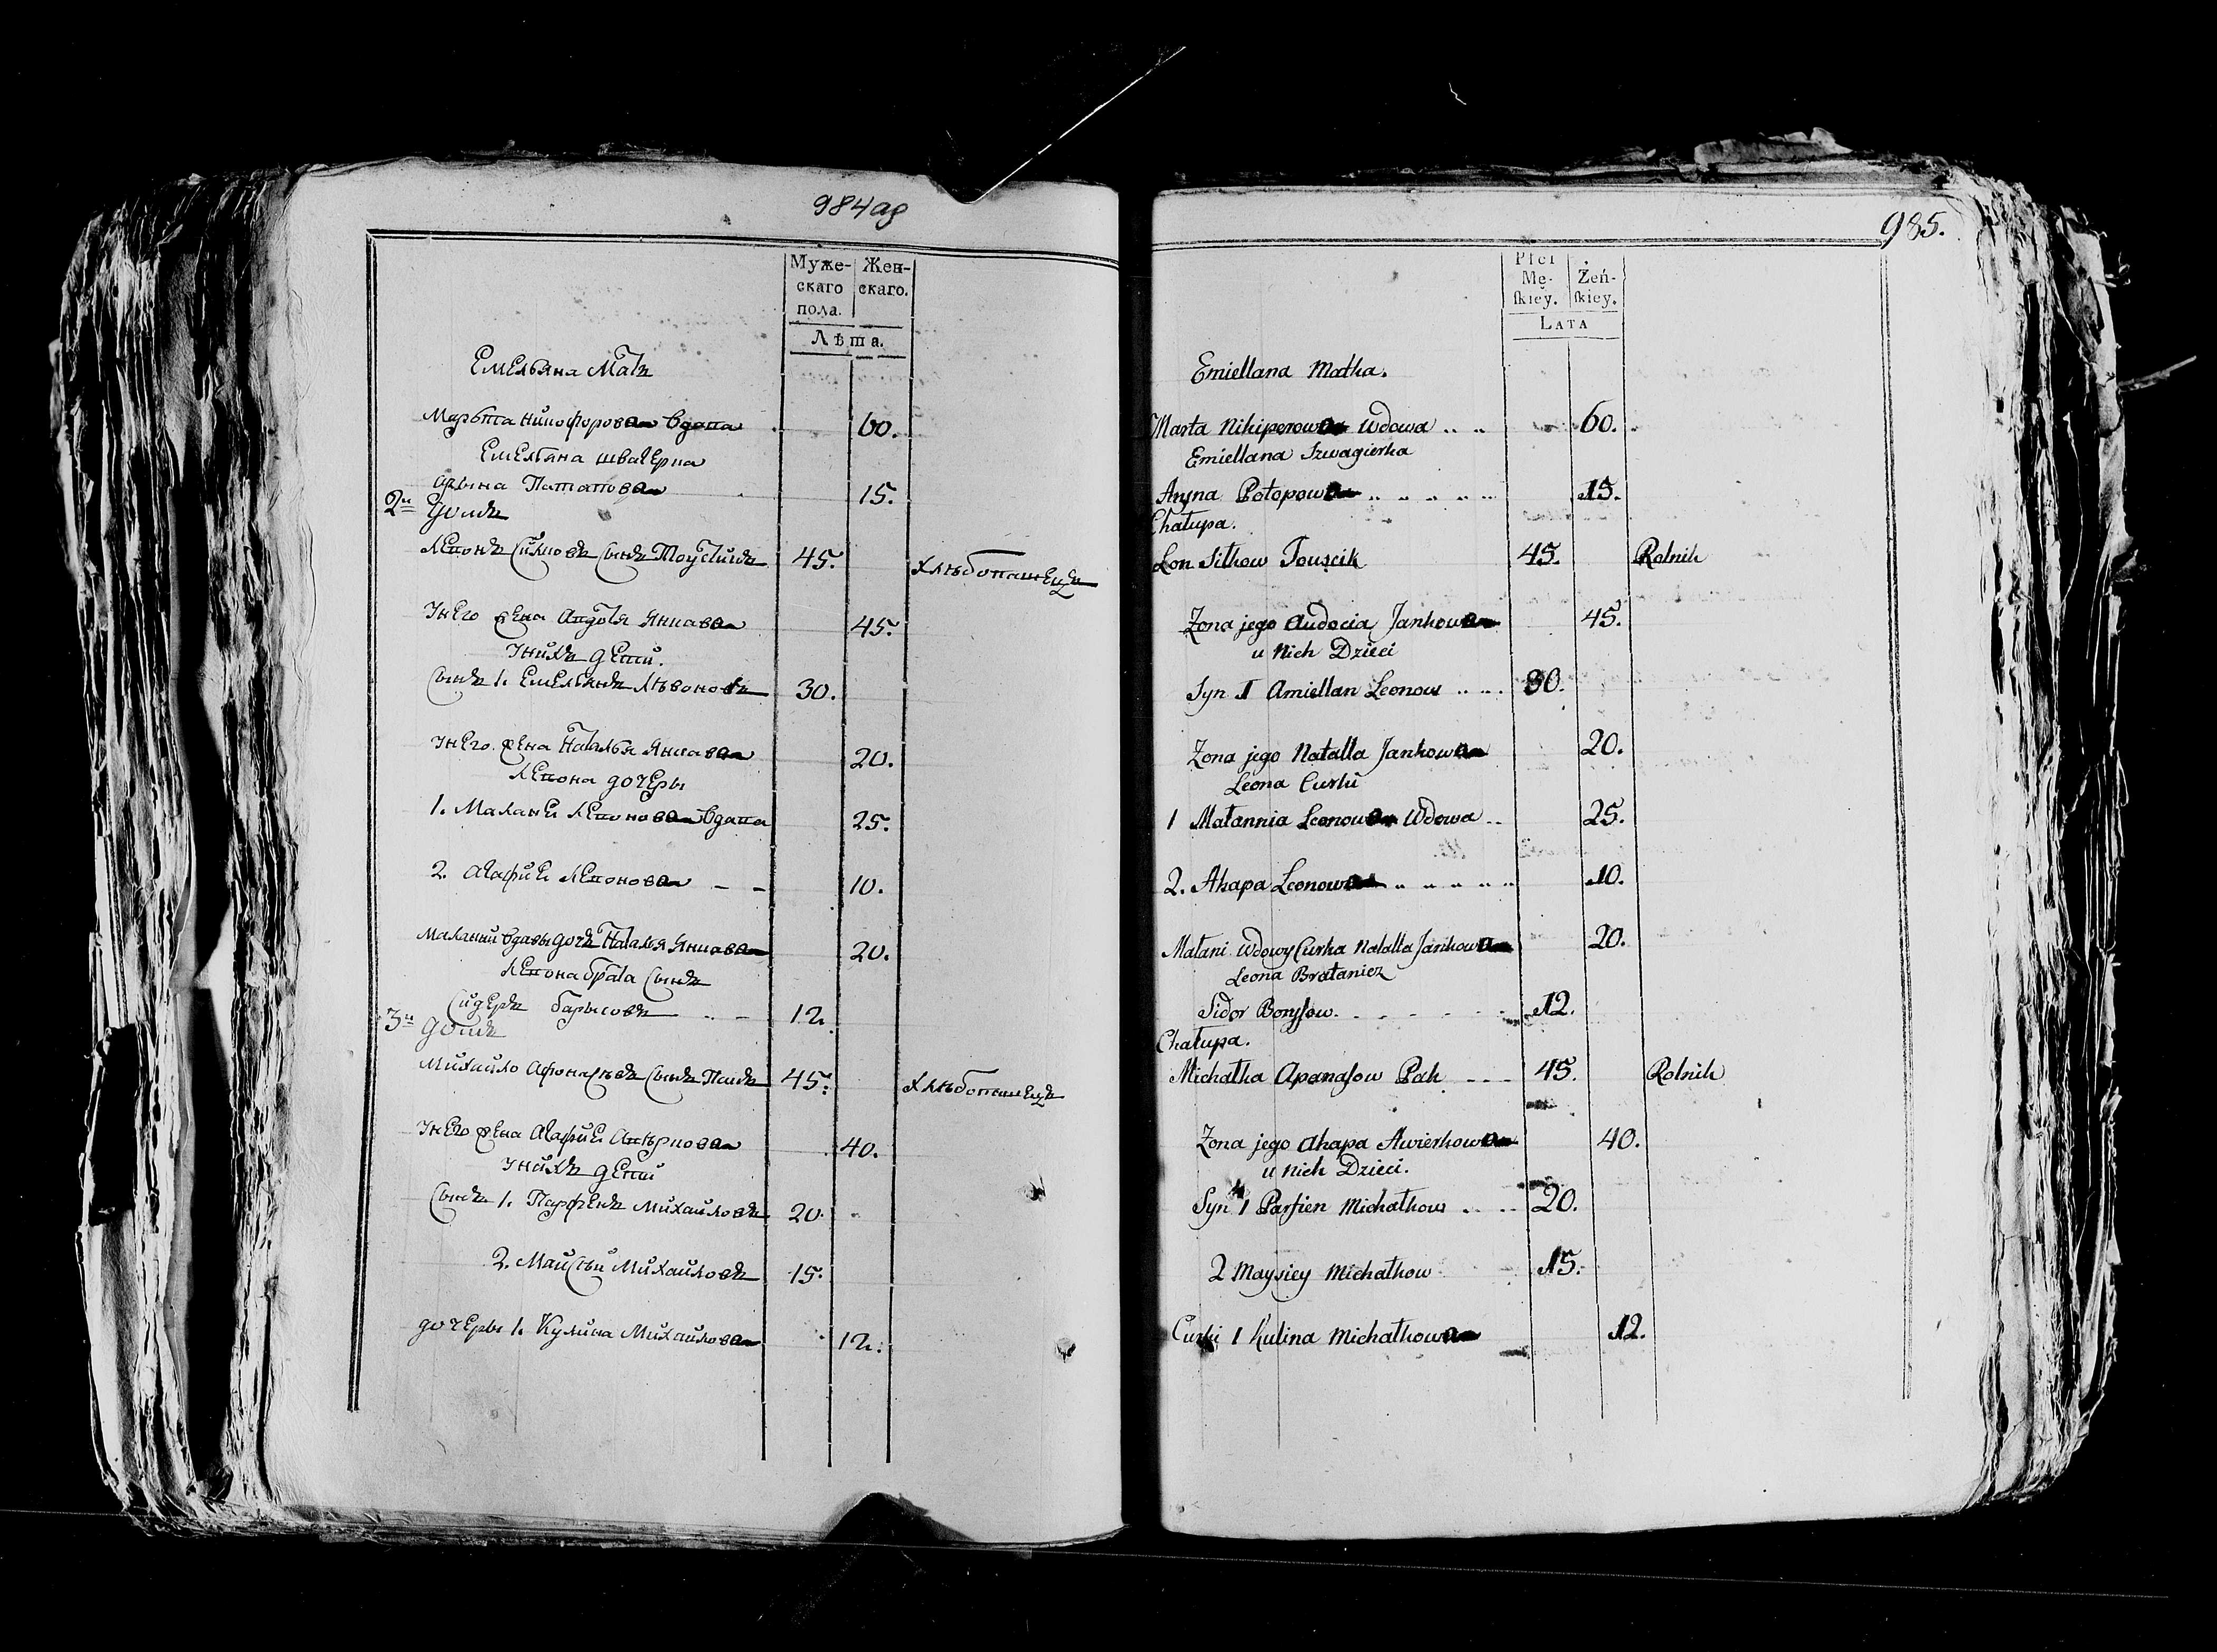 984 ад
Муже- Жен-
скаго скаго.
пола.
Лѣта.
Емельяна Мать
Марьта Никифорова вдова 60.
Емельяна швагерка
Арына Патапова 15.
2й Домъ
Левонъ Силковъ Сынъ Тоустикъ 45. хлѣбопашецъ
У него жена Авдотя Янкава 45.
У нихъ дети.
Сынъ 1. Емельянъ Лѣвоновъ 30.
У него жена Наталья Янкава 20.
Левона дочеры
1. Малания Левонова вдава 25.
2. Агафия Левонова 10.
Малании вдавы дочь Наталья Янкава 20.
Левона брата Сынъ
Сидеръ Барысовъ 12.
3й Домъ
Михайло Афонасьевъ Сынъ Пакъ 45. хлѣбопашецъ
У него жена Агафия Авѣркова 40.
У нихъ дети
Сынъ 1. Парфенъ Михайловъ 20.
2. Майсѣй Михайловъ 15.
дочеры 1. Кулина Михайлова 12.
985.
Płci
Mę- Żeń-
ſkiey. ſkiey.
LATA
Emiellana Matka.
Marta Nikiperowa Wdowa 60.
Emiellana Szwagierka
Aryna Potopowa 15.
Chałupa.
Lon Siłkow Touscik 45. Rolnik
Zona jego Audocia Jankowa 45.
u Nich Dzieci
Syn 1 Amiellan Leonow 30.
Zona jego Natalla Jankowa 20.
Leona Curki
1 Małannia Leonowa Wdowa 25.
2. Ahapa Leonowa 10.
Małani Wdowy Curka Natalla Jankowa 20.
Leona Bratanicz
Sidor Boryſow 12.
Chałupa.
Michałka Apanaſow Pak 45. Rolnik
Zona jego Ahapa Awierkowa 40.
u Nich Dzieci.
Syn 1 Parfien Michałkow 20.
2 Maysiey Michałkow 15.
Curki 1 Kulina Michałkowa 12.